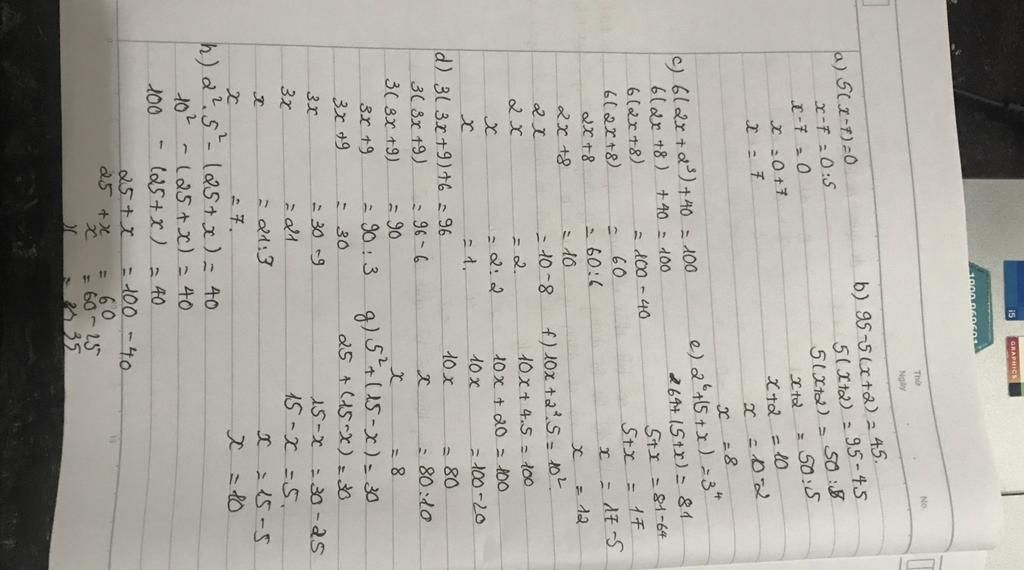 Thứ
Ngày
No.
a) 5(x-7)=0
x-7=0:5
x-7=0
x=0+7
x=7
b) 95-5(x+2)=45.
5(x+2)=95-45
5(x+2)=50
x+2=50:5
x+2=10
x=10-2
x=8
c) 6(2x+2³)+40=100
6(2x+8)+40=100
6(2x+8)=100-40
6(2x+8)=60
2x+8=60:6
2x+8=10
2x=10-8
2x=2.
x=2:2
x=1.
d) 3(3x+9)+6=96
3(3x+9)=96-6
3(3x+9)=90
3x+9=90:3
3x+9=30
3x=30-9
3x=21
x=21:3
x=7.
e) 2⁶+(5+x)=3⁴
64+(5+x)=81
5+x=81-64
5+x=17
x=17-5
x=12
f) 10x+2².5=10².
10x+4.5=100
10x+20=100
10x=100-20
10x=80
x=80:10
x=8
g) 5²+(15-x)=30
25+(15-x)=30
15-x=30-25
15-x=5.
x=15-5
x=10
h) 2².5²-(25+x)=40
10²-(25+x)=40
100-(25+x)=40
25+x=100-40
25+x=60
x=60-25
x=35
GRAPHICS